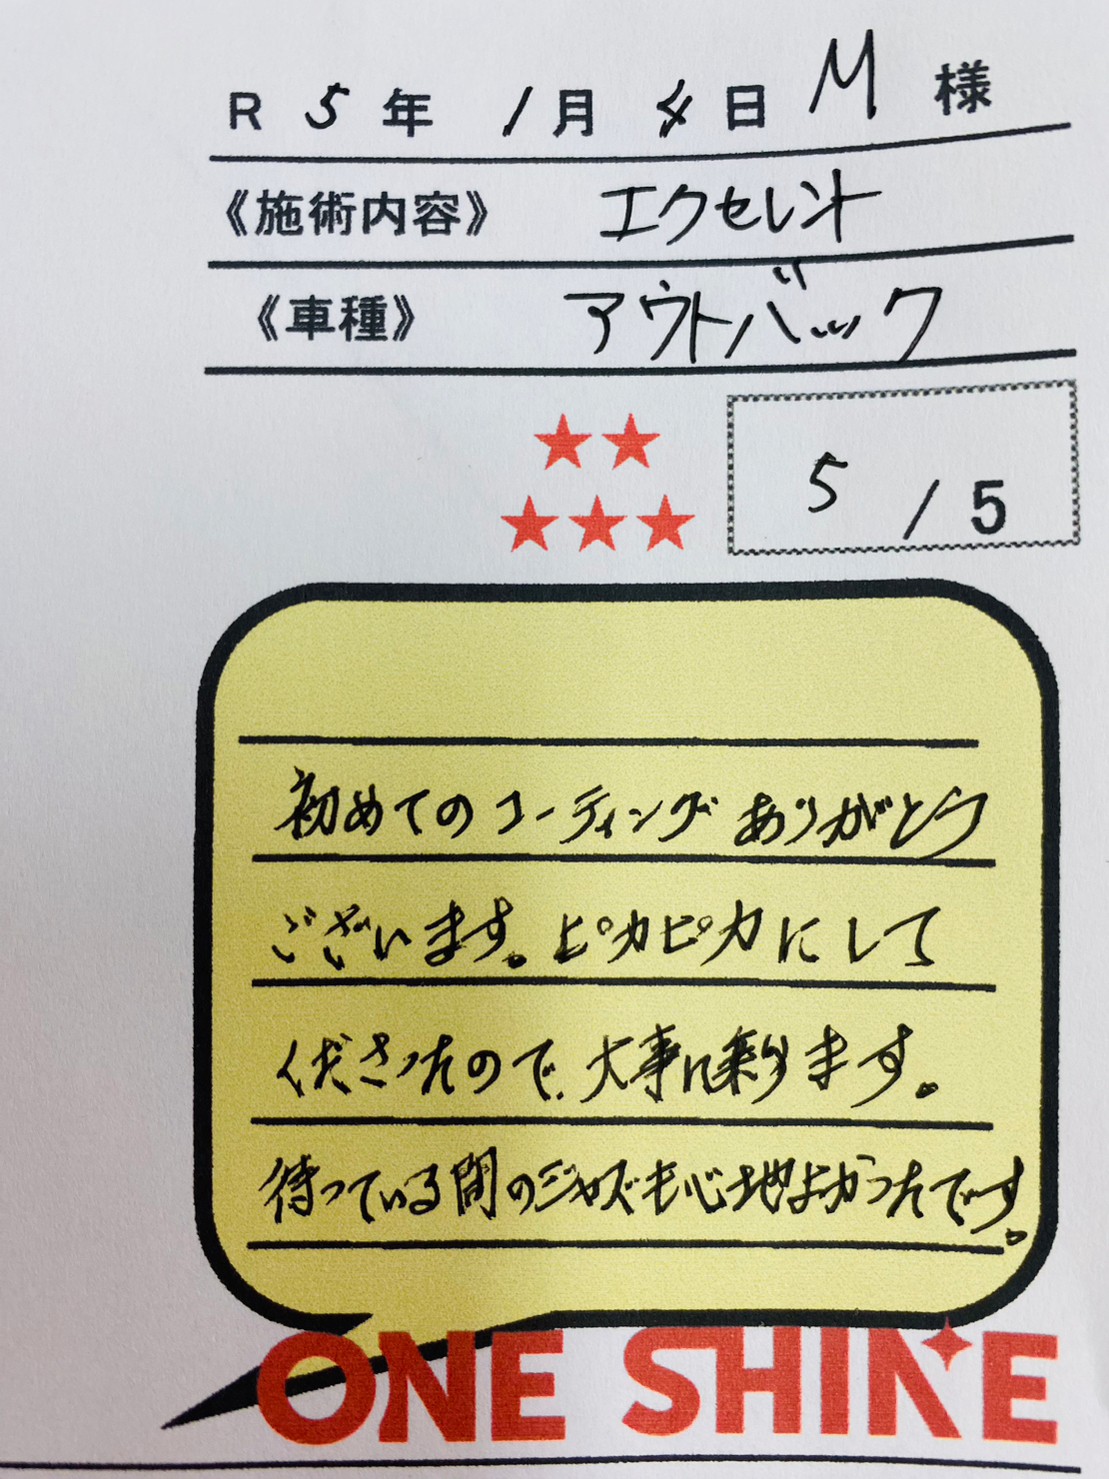 R 5 年 1 月 4 日 M 様
《施術内容》 エクセレント
《車種》 アウトバック
5 / 5
初めてのコーティングありがとう
ございます。ピカピカにして
くださったので、大事に乗ります。
待っている間のジャズも心地よかったです。
ONE SHINE